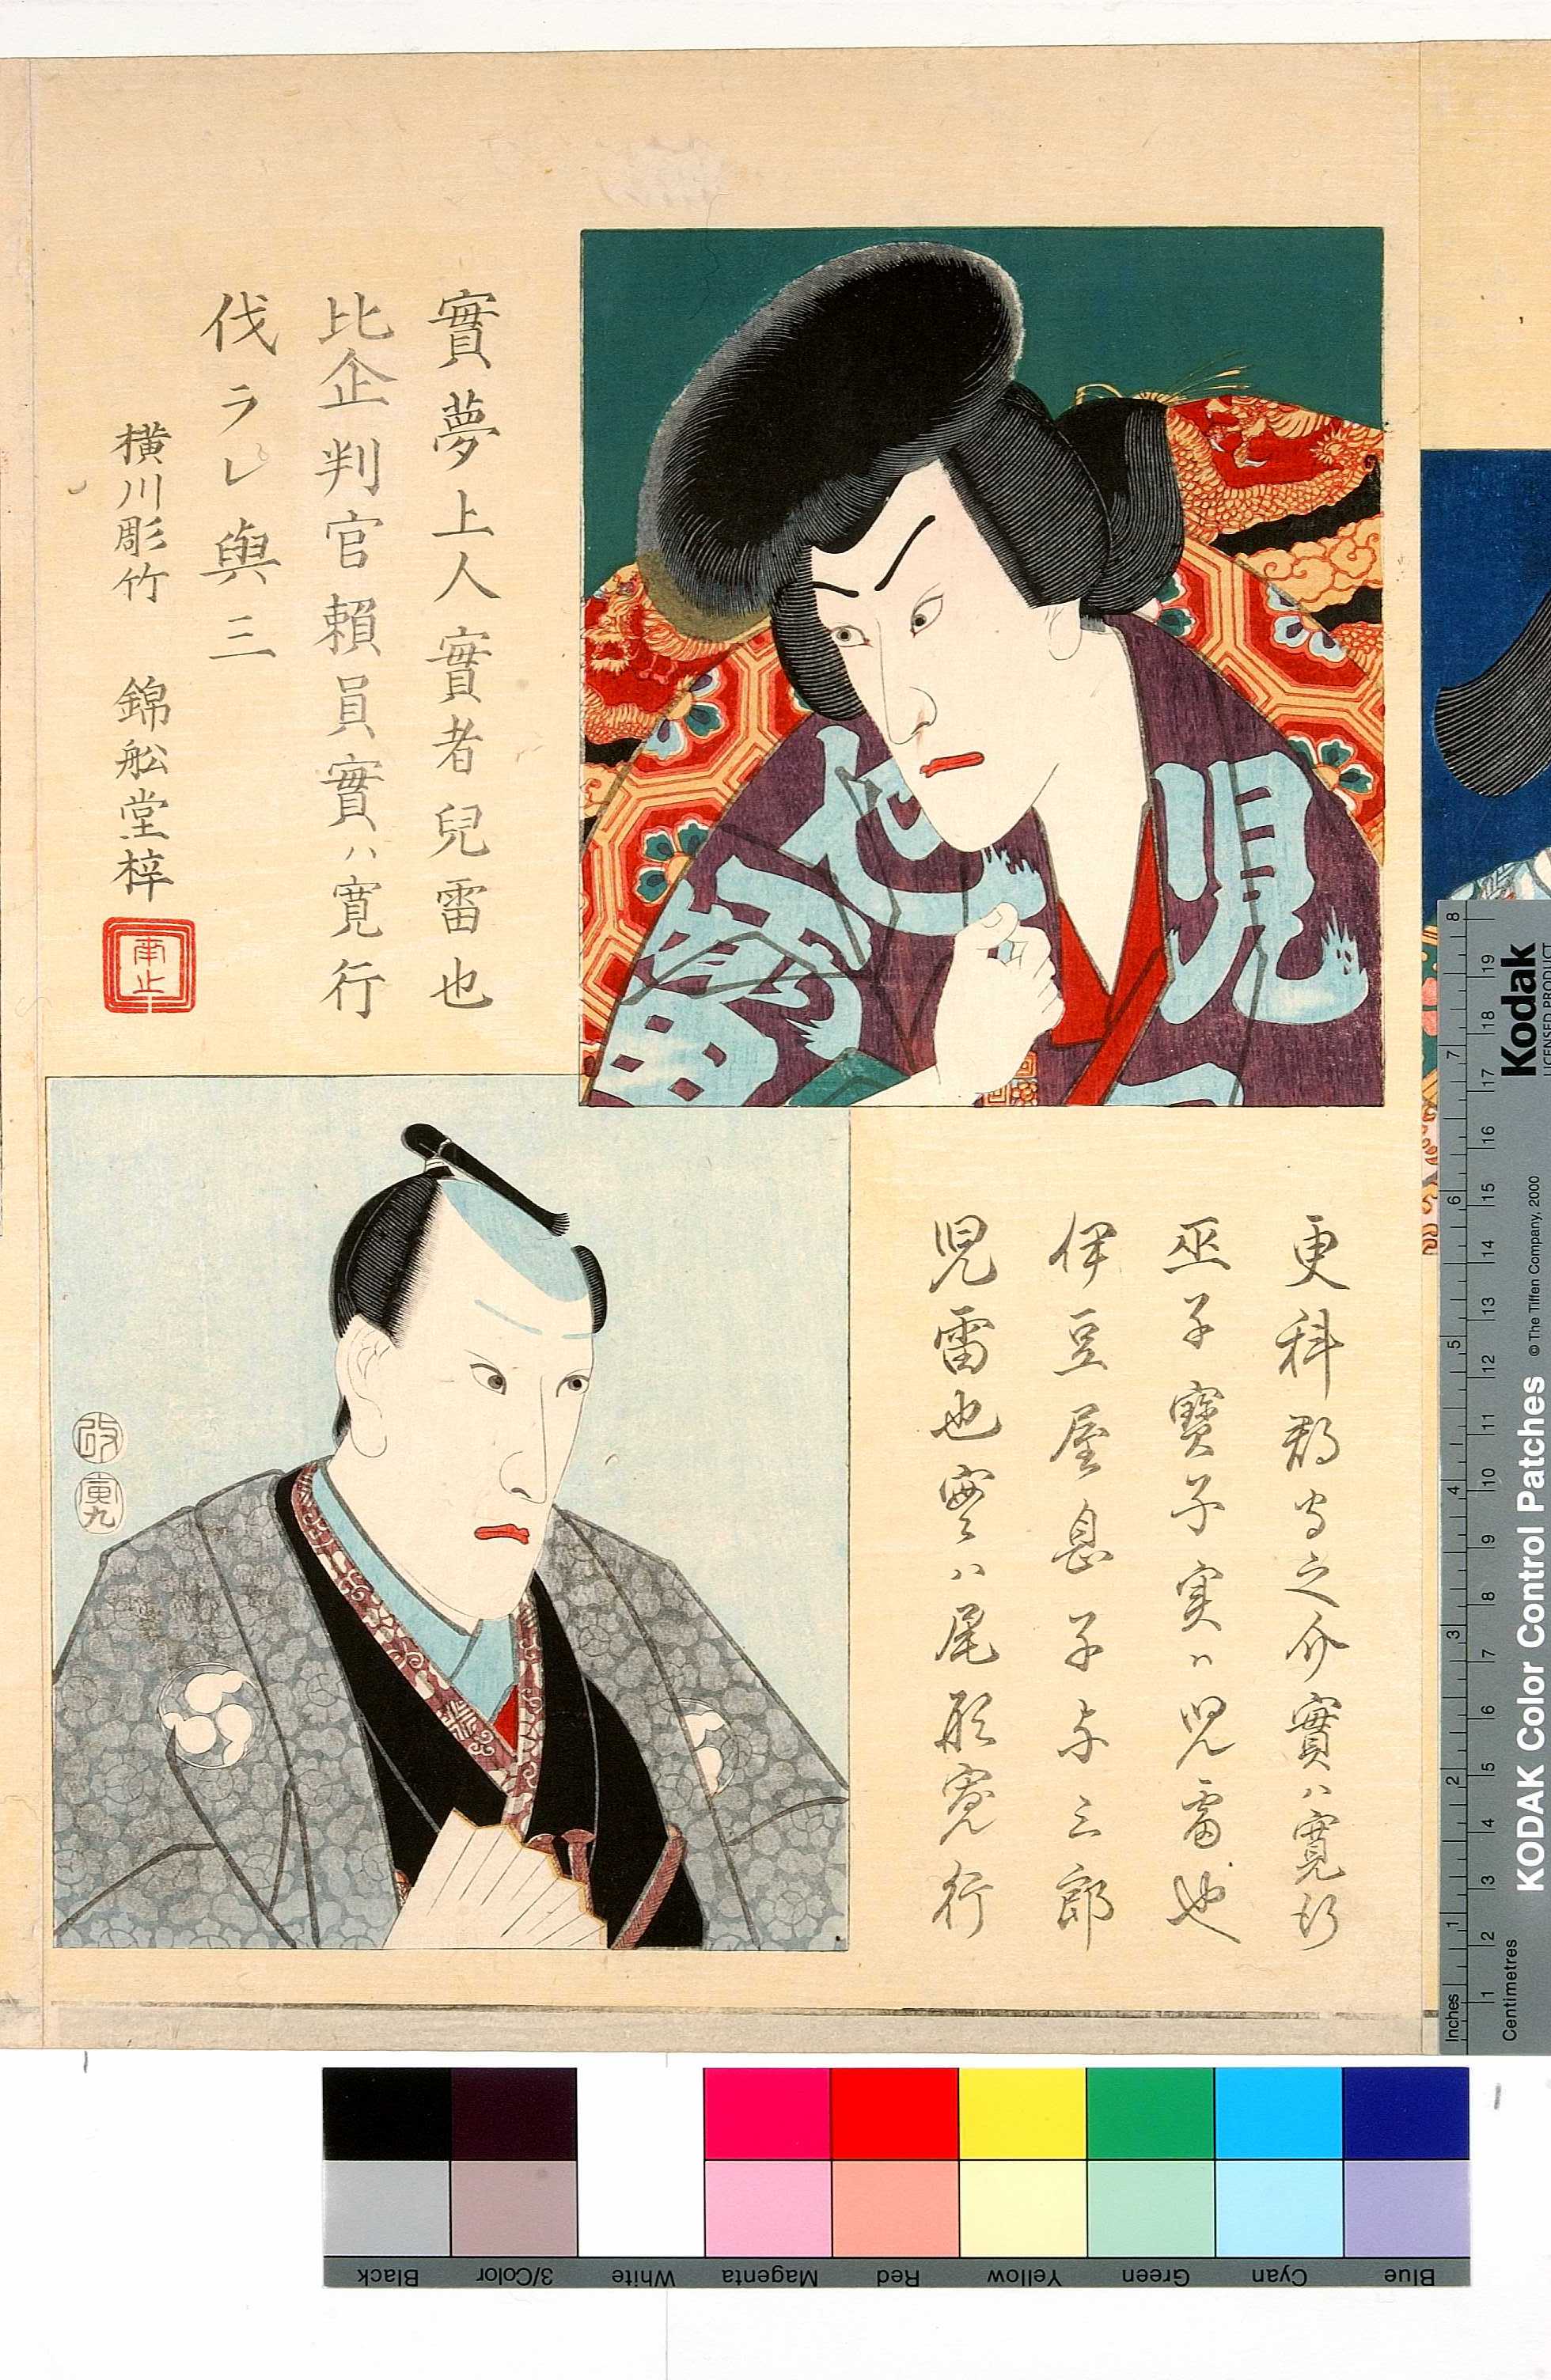 實夢上人實者兒雷也
比企判官賴員實ハ寛行
伐ラレ與三
横川彫竹 錦舩堂梓
更科郡司之介實ハ寛行
巫子寳子実ハ児雷也
伊豆屋息子与三郎
児雷也実ハ尾形寛行
児
也
雷
改
寅九
KODAK Color Control Patches
© The Tiffen Company, 2000
Kodak
LICENSED PRODUCT
Inches
1 2 3 4 5 6 7 8
Centimetres
1 2 3 4 5 6 7 8 9 10 11 12 13 14 15 16 17 18 19
Blue
Cyan
Green
Yellow
Red
Magenta
White
3/Color
Black